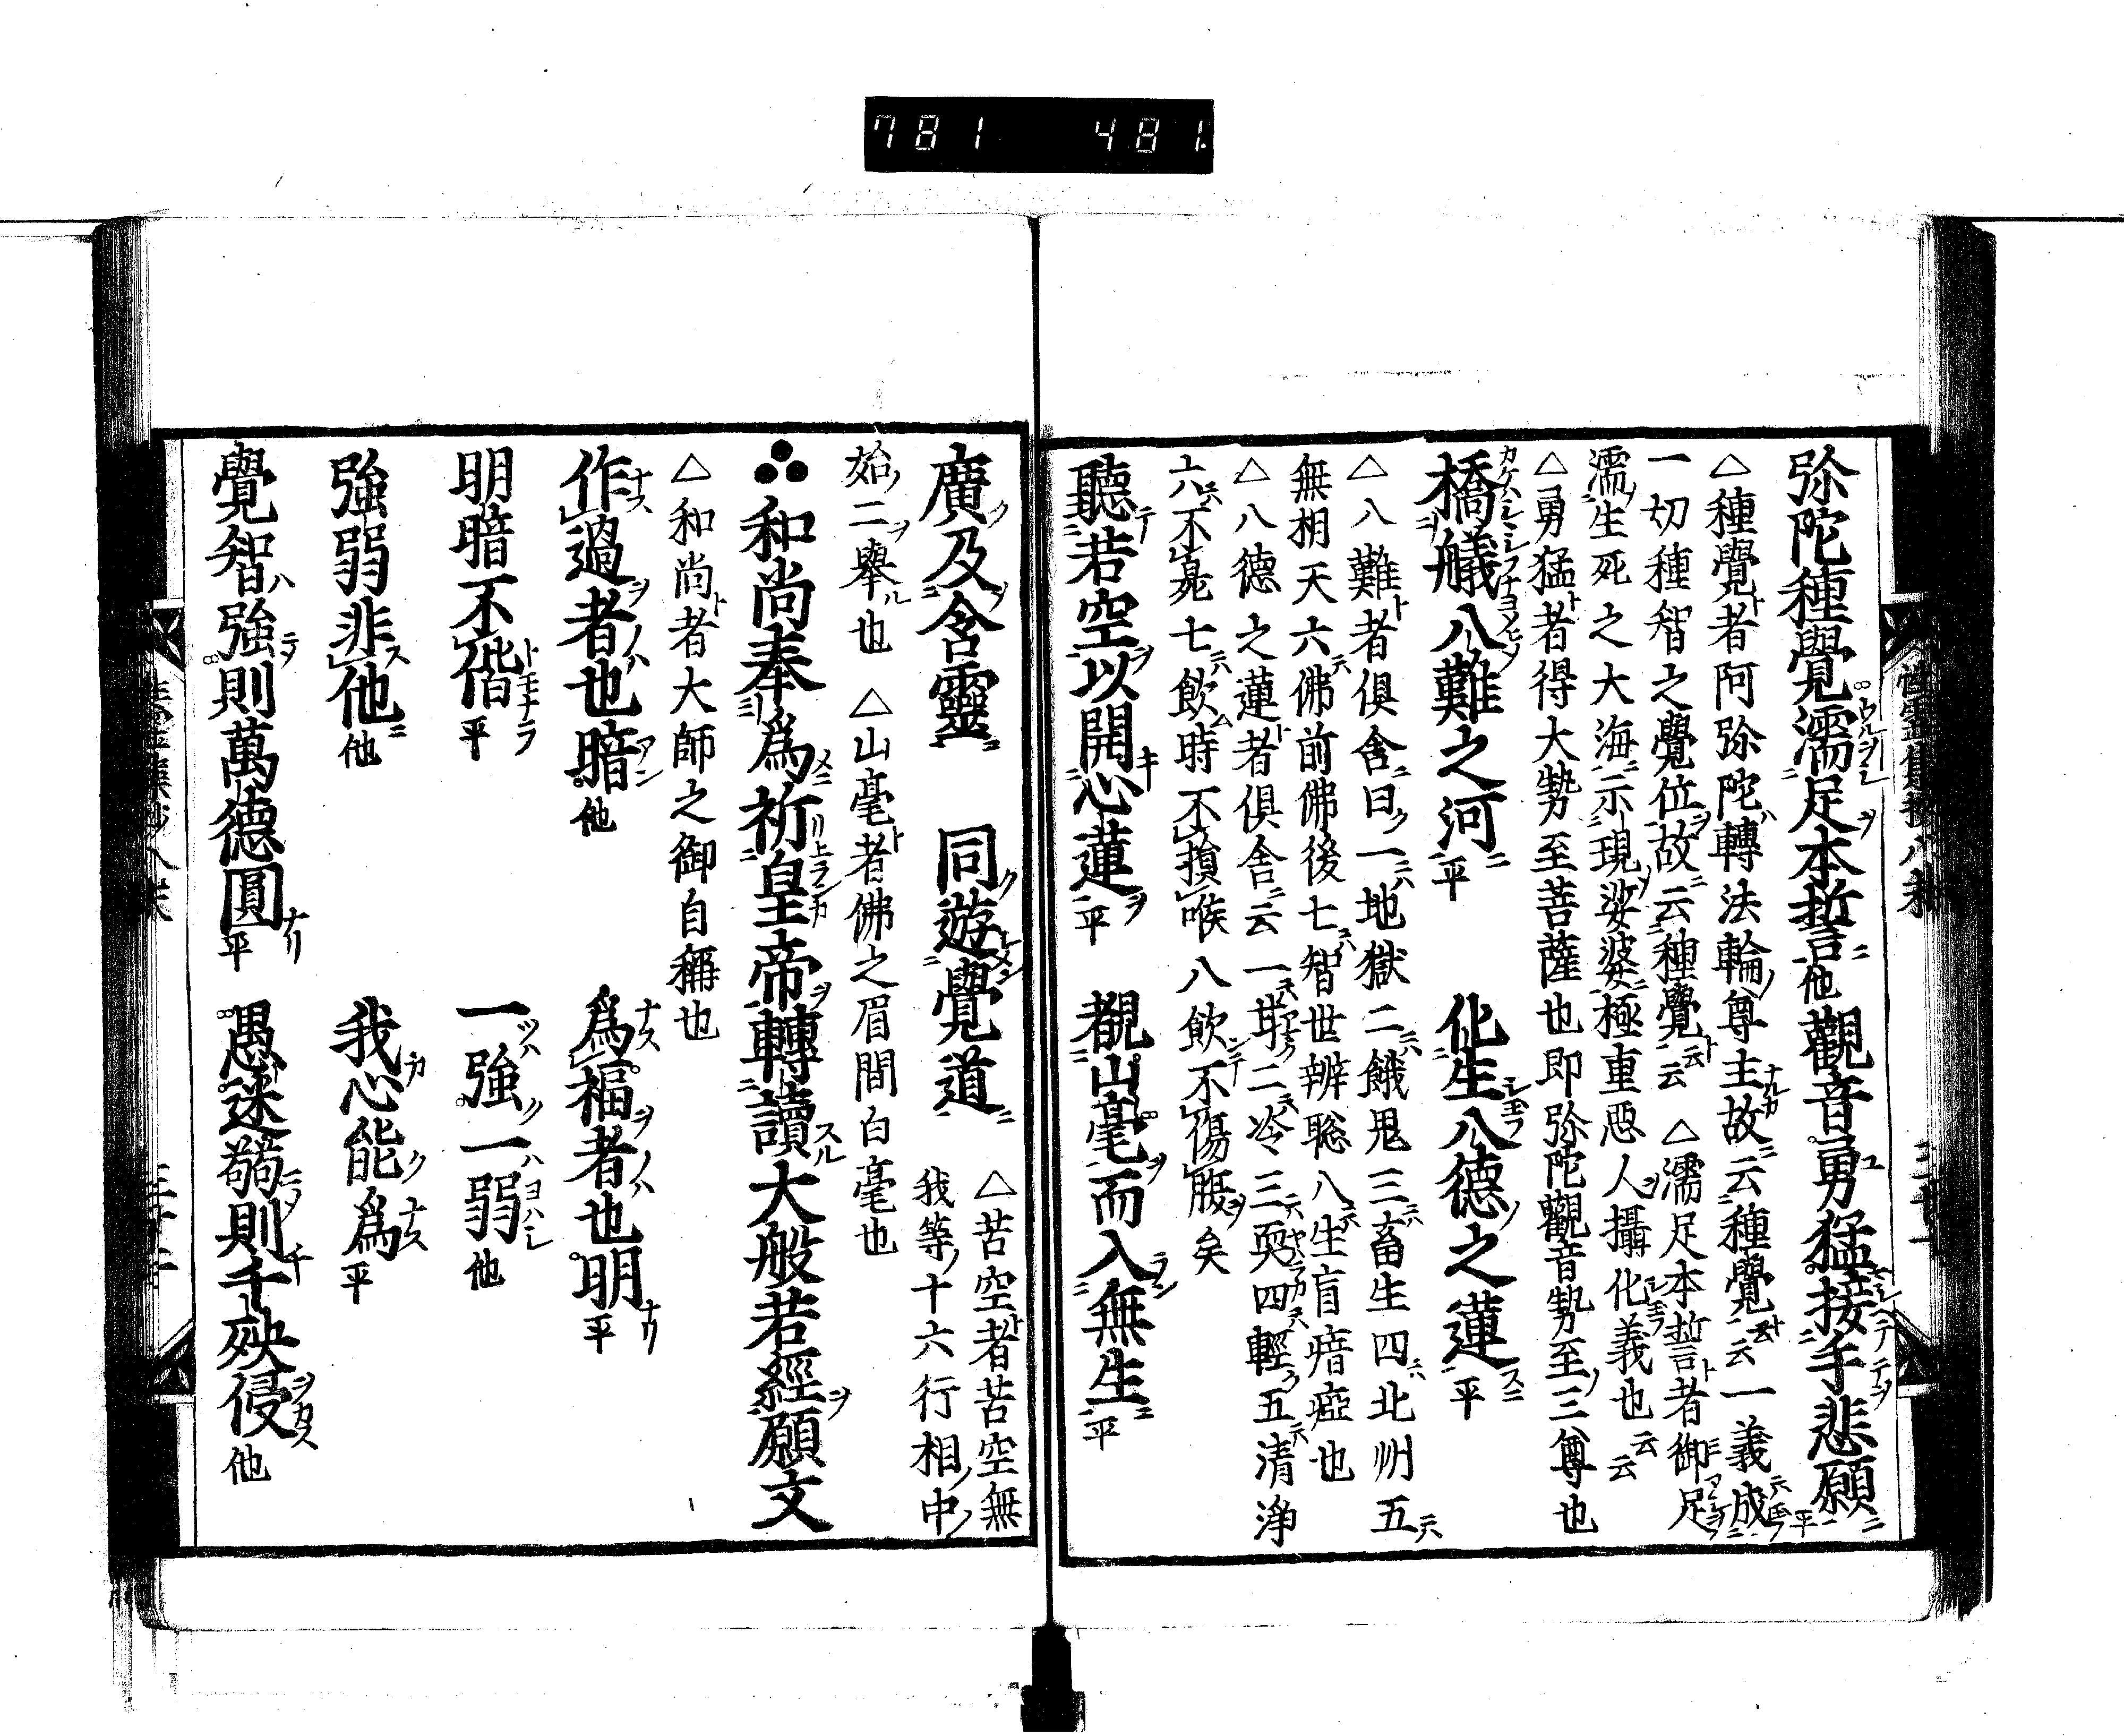 781 481.
弥陀種覺濡足本誓他 觀音勇猛接手悲願平
△種覺者阿弥陀轉法輪尊主故云種覺云云一義成
一切種智之覺位故云種覺云云 △濡足本誓者御足
濡生死之大海示現娑婆極重悪人攝化義也云云
△勇猛者得大勢至菩薩也即弥陀觀音勢至三尊也
橋艤八難之河平 化生八德之蓮平
△八難者俱舎曰一地獄二餓鬼三畜生四北州五
無想天六佛前佛後七智世辨聡八生盲瘖瘂也
△八德之蓮者俱舎云一甘二冷三耎四輕五清浄
六不臭七飲時不損喉八飲不傷腹矣
聽苦空以開心蓮平 覩山毫而入無生平
廣及含靈 同遊覺道 △苦空者苦空無
我等十六行相中
始二擧也 △山毫者佛之眉間白毫也
和尚奉為祈皇帝轉讀大般若經願文
△和尚者大師之御自稱也
作過者也暗他 為福者也明平
明暗不偕平 一強一弱他
強弱非他他 我心能為平
覺智強則萬德圓平 愚迷弱則千殃侵他